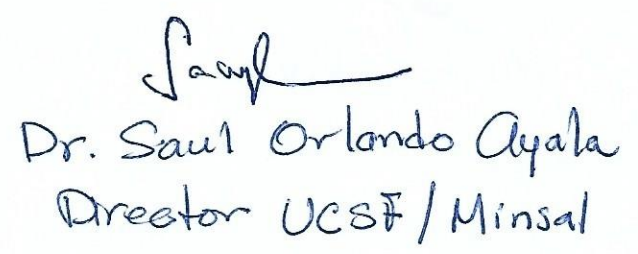 Dr. Saul Orlando Ayala
Director UCSF/Minsal